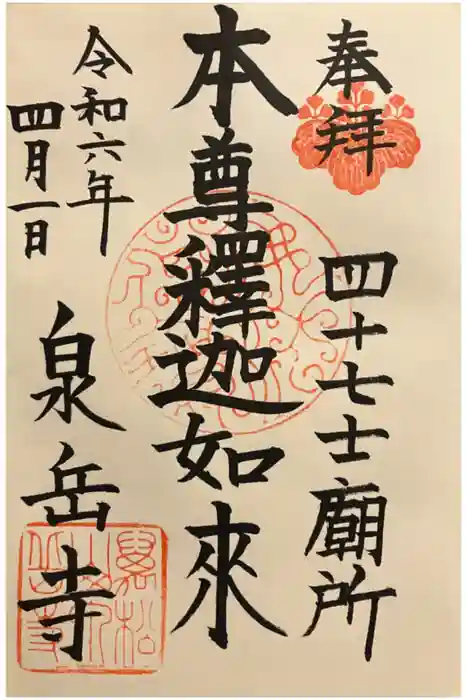 奉拝
四十七士廟所
本尊釋迦如來
令和六年
四月一日
泉岳寺